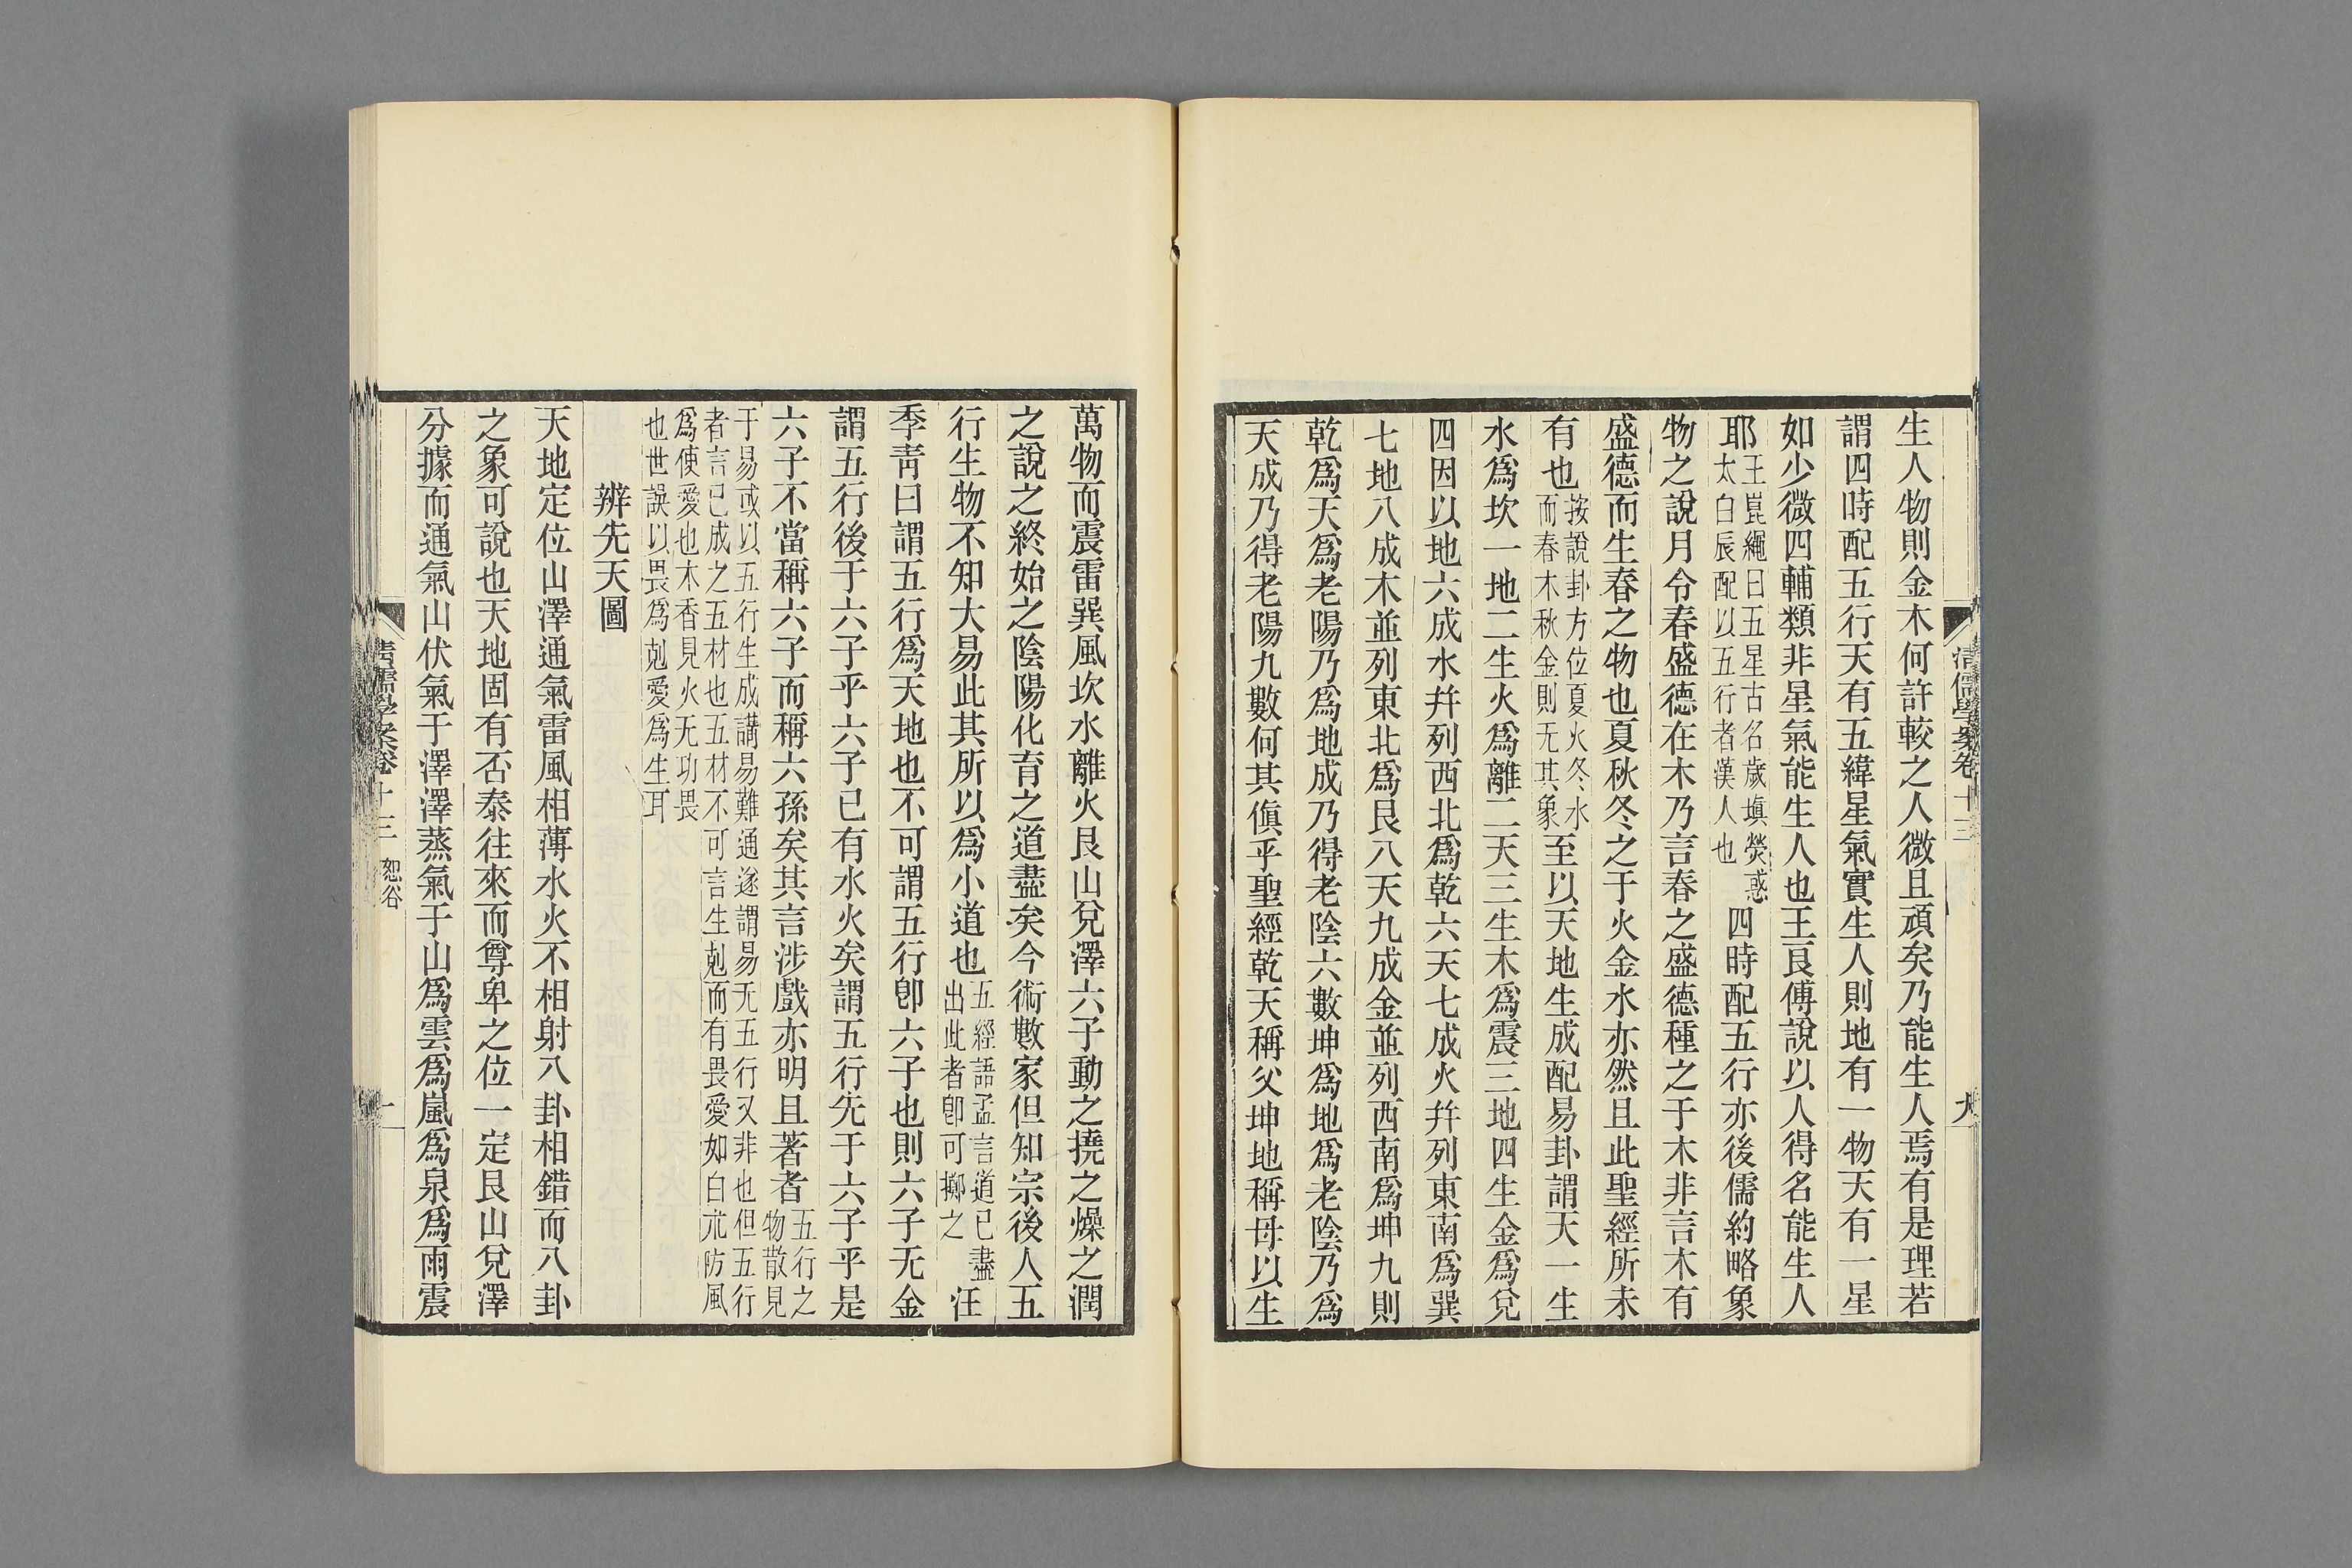 清儒學案卷十三
生人物則金木何許較之人微且頑矣乃能生人焉有是理若
謂四時配五行天有五緯星氣實生人則地有一物天有一星
如少微四輔類非星氣能生人也王良傅說以人得名能生人
耶王崑繩曰五星古名歲塡熒惑太白辰配以五行者漢人也四時配五行亦後儒約略象
物之說月令春盛德在木乃言春之盛德種之于木非言木有
盛德而生春之物也夏秋冬之于火金水亦然且此聖經所未
有也按說卦方位夏火冬水而春木秋金則无其象至以天地生成配易卦謂天一生
水爲坎一地二生火爲離二天三生木爲震三地四生金爲兌
四因以地六成水幷列西北爲乾六天七成火幷列東南爲巽
七地八成木並列東北爲艮八天九成金並列西南爲坤九則
乾爲天爲老陽乃爲地成乃得老陰六數坤爲地爲老陰乃爲
天成乃得老陽九數何其傎乎聖經乾天稱父坤地稱母以生
萬物而震雷巽風坎水離火艮山兌澤六子動之撓之燥之潤
之說之終始之陰陽化育之道盡矣今術數家但知宗後人五
行生物不知大易此其所以爲小道也五經語孟言道已盡出此者卽可擲之汪
季靑曰謂五行爲天地也不可謂五行卽六子也則六子无金
謂五行後于六子乎六子已有水火矣謂五行先于六子乎是
六子不當稱六子而稱六孫矣其言涉戲亦明且著者五行之物散見
于易或以五行生成講易難通遂謂易无五行又非也但五行
者言已成之五材也五材不可言生剋而有畏愛如白朮防風
爲使愛也木香見火无功畏
也世誤以畏爲剋愛爲生耳
辨先天圖
天地定位山澤通氣雷風相薄水火不相射八卦相錯而八卦
之象可說也天地固有否泰往來而尊卑之位一定艮山兌澤
分據而通氣山伏氣于澤澤蒸氣于山爲雲爲嵐爲泉爲雨震
清儒學案卷十三 恕谷